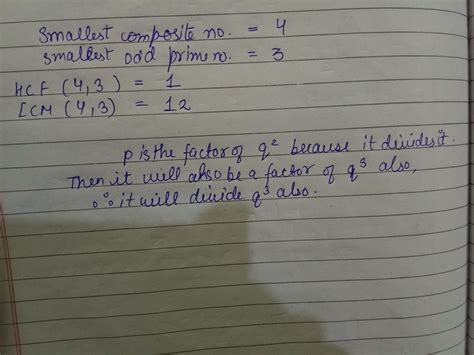 Smallest composite no. = 4
smallest odd prime no. = 3
HCF (4,3) = 1
LCM (4,3) = 12
p is the factor of q² because it divides it.
Then it will also be a factor of q³ also,
∴ it will divide q³ also.